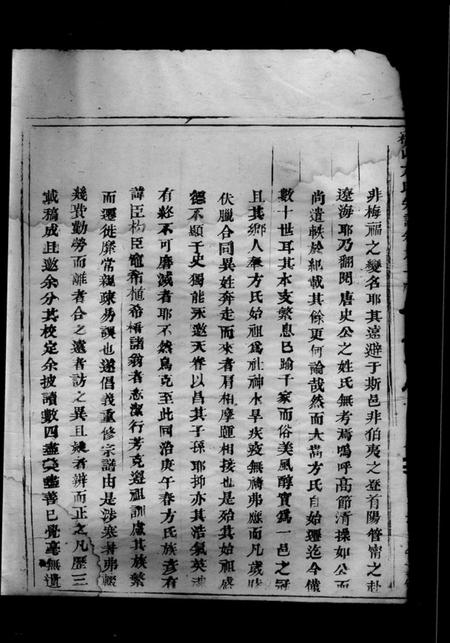 非梅福之變名耶其遠避于斯邑非伯夷之登首陽管甯之赴
遼海耶乃翻閱唐史公之姓氏無考焉嗚呼高節清操如公而
尚遺軼於紀載其餘更何論哉然而大嵩方氏自始遷迄今僅
數十世耳其水支繁息已踰千家而俗美風醇實為一邑之冠
且其鄉人奉方氏始祖為社神水旱疾疫無禱弗應而凡歲時
伏臘合同異姓奔走而來者肩相摩踵相接也是殆其始祖盛
德不顯于史獨能永邀天眷以昌其子孫耶抑亦其浩氣英
有終不可磨滅者耶不然烏克至此同治庚午春方氏族彥有
諱臣杓臣寵希植希楷諸翁者志潔行芳克遵祖訓慮其族繁
而遷徙靡常親疎易誤也遂倡義重修宗譜由是涉寒暑弗輟
幾費勤勞而離者合之遠者訪之異且疑者辨而正之凡歷三
載稿成且邀余分其校定余披讀數四盡美盡善已覺毫無遺